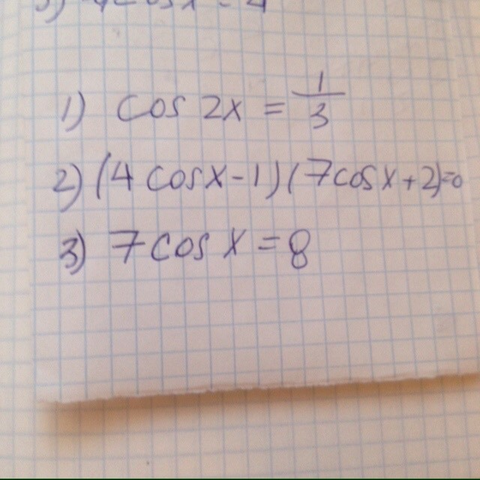 1) cos 2x = 1/3
2) (4 cosx-1)(7cosx+2)=0
3) 7cosx=8